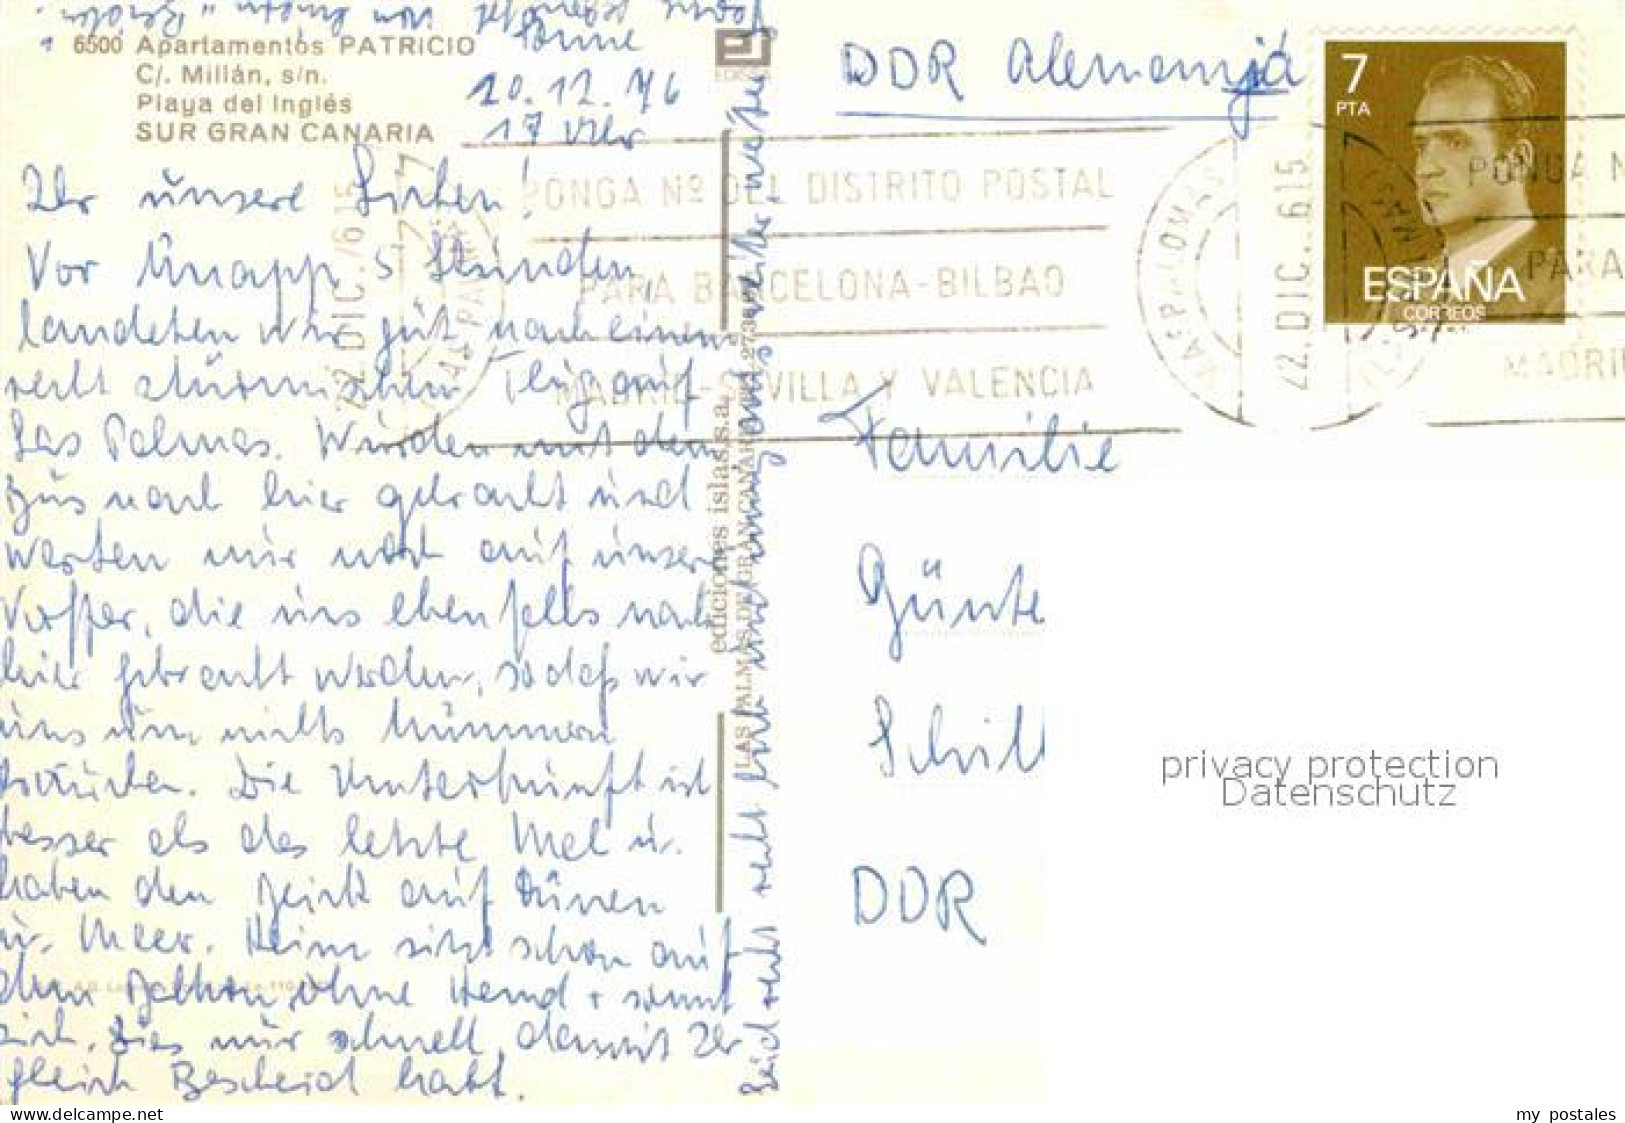 6500 Apartamentos PATRICIO
C/. Millán, s/n.
Playa del Inglés
SUR GRAN CANARIA
20.12.76
17 Uhr
Ihr unsere Lieben!
Vor knapp 5 Stunden
landeten wir gut nach einem
recht stürmischen Flug auf
Las Palmas. Wurden mit dem
Bus nach hier gebracht und
warten nur noch auf unsere
Koffer, die uns ebenfalls nach
hier gebracht werden, sodaß wir
uns um nichts kümmern
brauchen. Die Unterkunft ist
besser als das letzte Mal u.
haben den Blick auf Dünen
u. Meer. Heinz sitzt schon auf
dem Balkon, ohne Hemd + sonnt
sich. Dies nur schnell, damit Ihr
gleich Bescheid habt.
Seid recht recht
ediciones islas, s.a.
LAS PALMAS DE GRAN CANARIA
DDR Alemania
7
PTA
ESPAÑA
CORREOS
PONGA Nº DEL DISTRITO POSTAL
PARA BARCELONA-BILBAO
MADRID-SEVILLA Y VALENCIA
MASPALOMAS
22. DIC. 615
PONGA N
PARA
MADRI
Familie
Günte
Schill
DDR
privacy protection
Datenschutz
delcampe.net
my postales